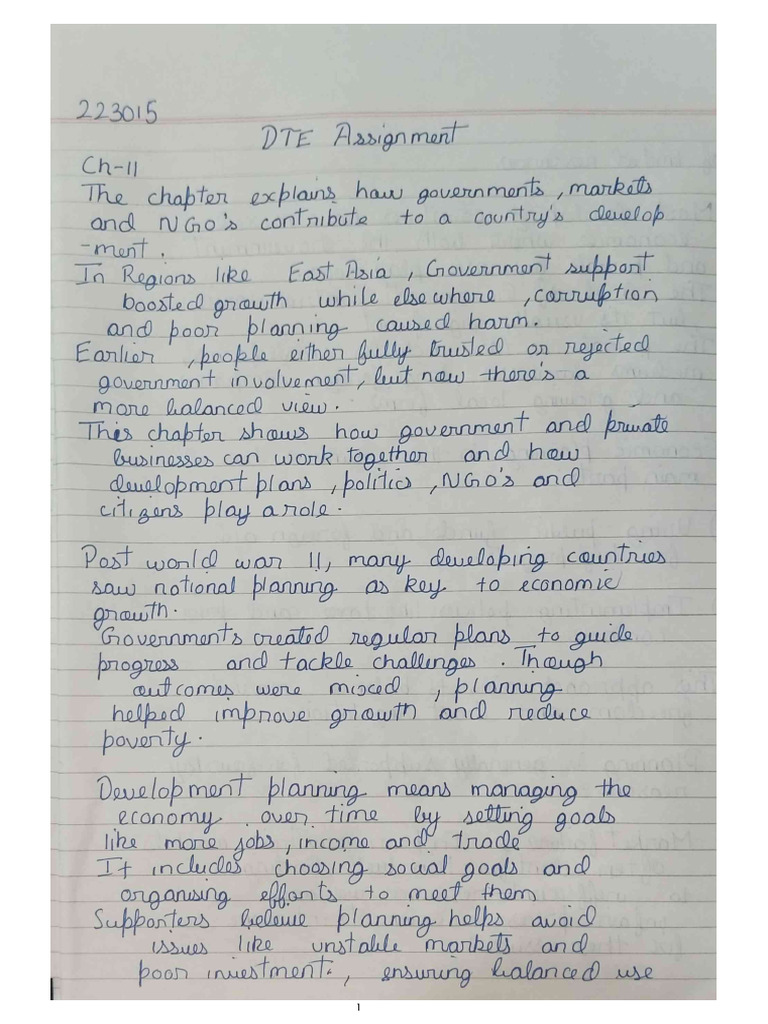 223015
DTE Assignment
Ch-11
The chapter explains how governments, markets
and NGO's contribute to a country's develop
-ment.
In Regions like East Asia, Government support
boosted growth while elsewhere, corruption
and poor planning caused harm.
Earlier, people either fully trusted or rejected
government involvement, but now there's a
more balanced view.
This chapter shows how government and private
businesses can work together and how
development plans, politics, NGO's and
citizens play a role.
Post world war 11, many developing countries
saw notional planning as key to economic
growth.
Governments created regular plans to guide
progress and tackle challenges. Though
outcomes were mixed, planning
helped improve growth and reduce
poverty.
Development planning means managing the
economy over time by setting goals
like more jobs, income and trade
It includes choosing social goals and
organising efforts to meet them
Supporters beleive planning helps avoid
issues like unstable markets and
poor investment, ensuring balanced use
1